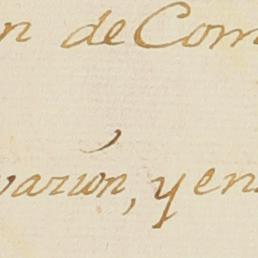 n de Com
varion, y en